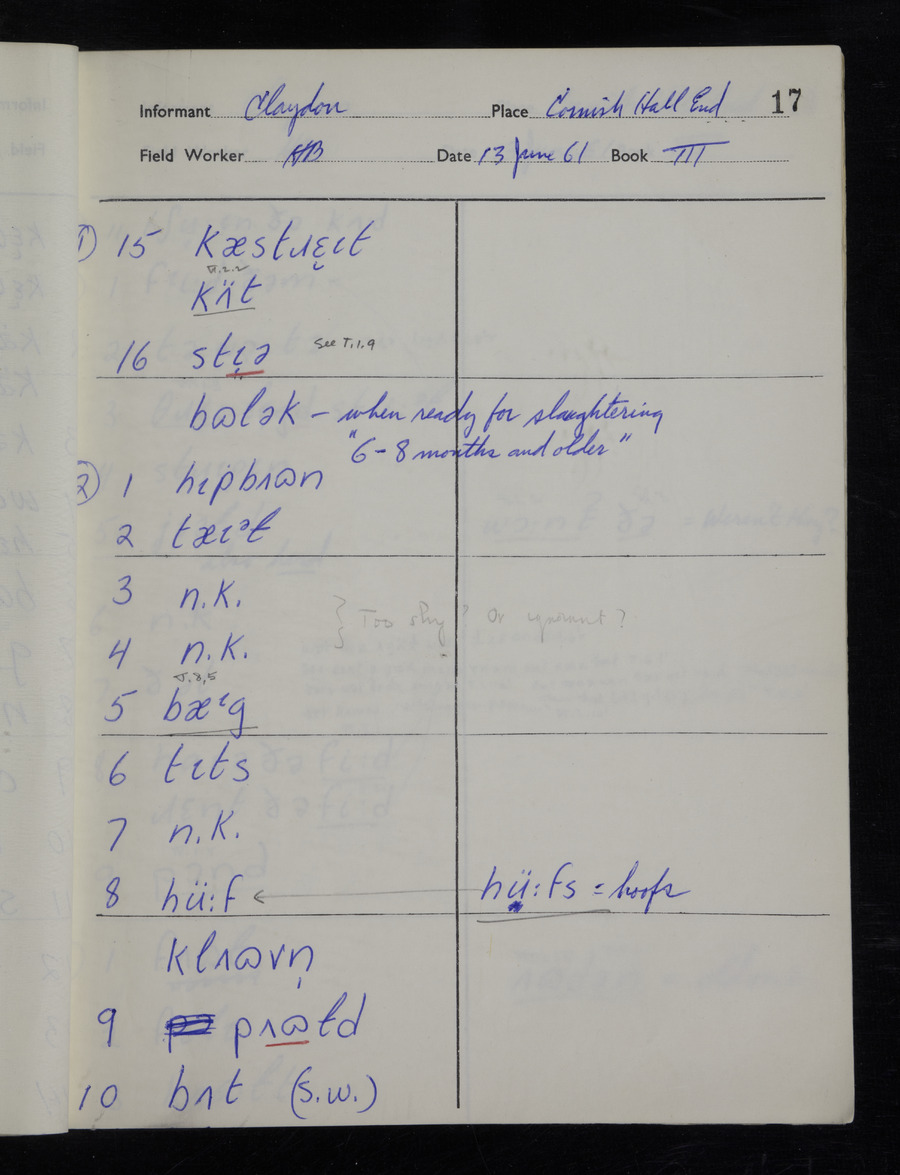 Informant Claydon Place Cornish Hall End 17
Field Worker HB Date 13 June 61 Book III
① 15 kæstɹɛ̣ɪt
kʌ̈t
16 stɪ̣ə See V.1.9
bɷlək – when ready for slaughtering
"6-8 months and older"
② 1 hɪpbʌɷn
2 tæɪᵊɫ
3 n.k.
} Too shy? Or ignorant?
4 n.k.
5 bæᶦg
6 tɪts
7 n.k.
8 hü:f ← hü:fs = hoofs
klʌɷvn̩
9 pʌɷɫd
10 bʌt (s.w.)